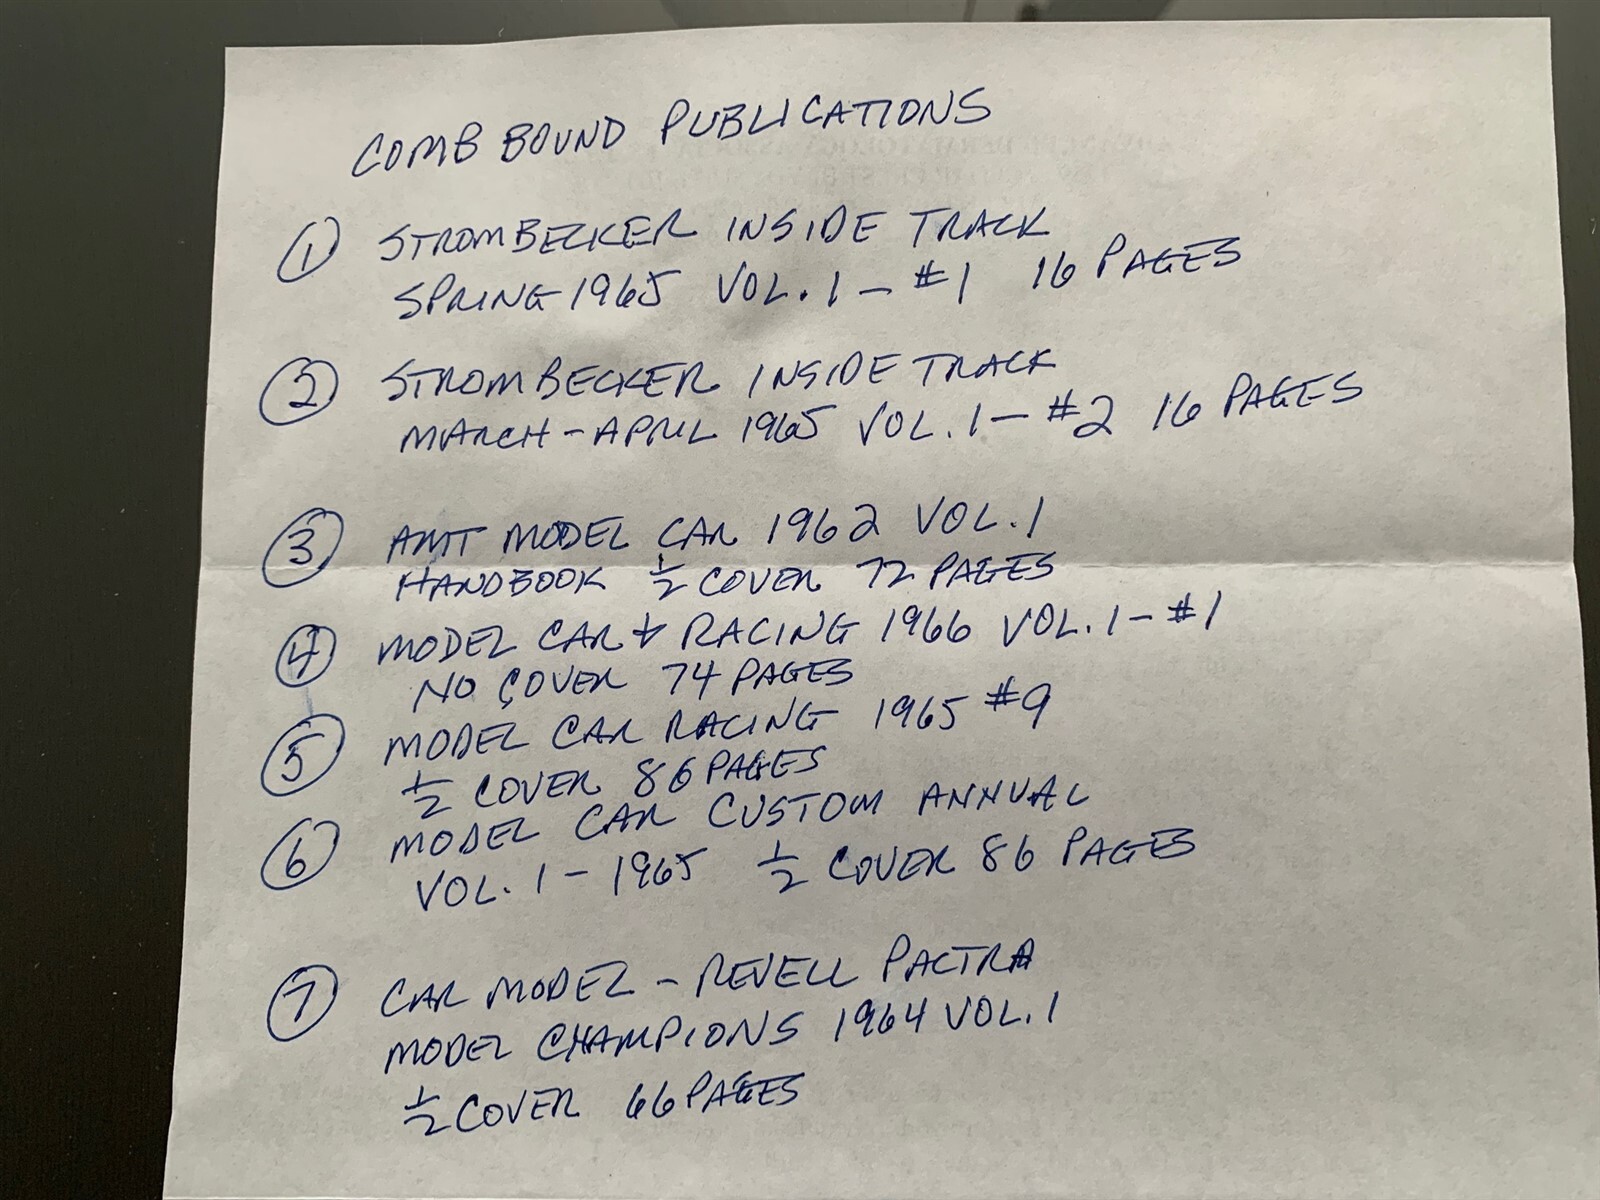 COMB BOUND PUBLICATIONS
1 STROMBECKER INSIDE TRACK
SPRING 1965 VOL. 1 - #1 16 PAGES
2 STROMBECKER INSIDE TRACK
MARCH - APRIL 1965 VOL. 1 - #2 16 PAGES
3 AMT MODEL CAR 1962 VOL. 1
HANDBOOK 1/2 COVER 72 PAGES
4 MODEL CAR & RACING 1966 VOL. 1 - #1
NO COVER 74 PAGES
5 MODEL CAR RACING 1965 #9
1/2 COVER 86 PAGES
6 MODEL CAR CUSTOM ANNUAL
VOL. 1 - 1965 1/2 COVER 86 PAGES
7 CAR MODEL - REVELL PACTRA
MODEL CHAMPIONS 1964 VOL. 1
1/2 COVER 66 PAGES